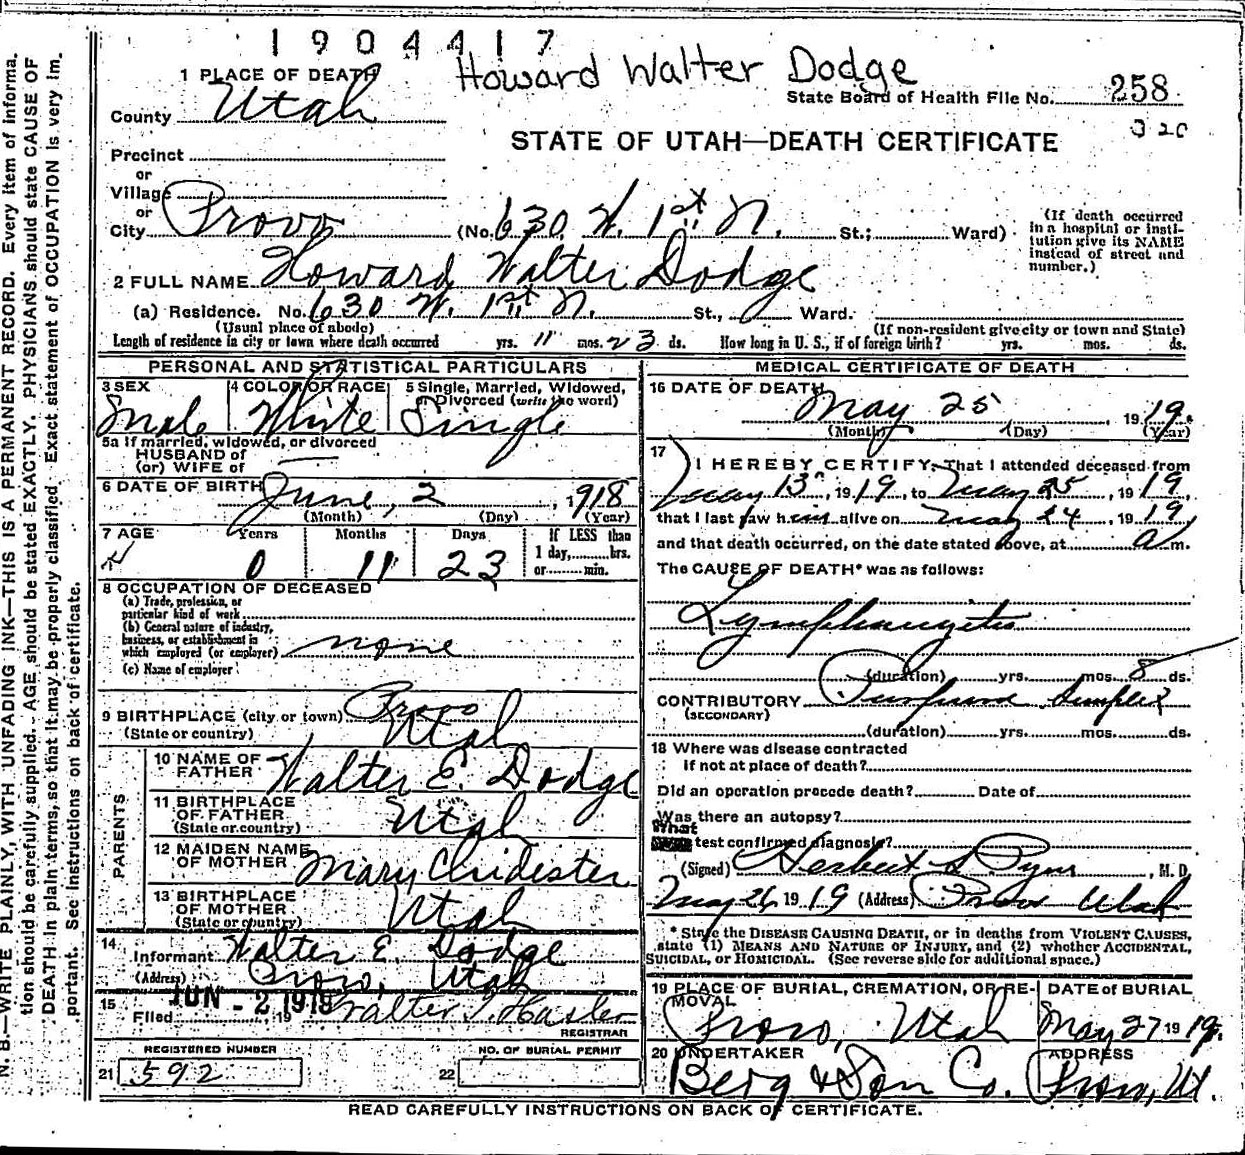 1904417
Howard Walter Dodge
1 PLACE OF DEATH
State Board of Health File No. 258
County Utah
320
STATE OF UTAH—DEATH CERTIFICATE
Precinct
or
Village
or
City Provo (No. 630 W. 1st N. St.; Ward)
(If death occurred in a hospital or institution give its NAME instead of street and number.)
2 FULL NAME Howard Walter Dodge
(a) Residence. No. 630 W. 1st N. St., Ward.
(Usual place of abode) (If non-resident give city or town and State)
Length of residence in city or town where death occurred yrs. 11 mos. 23 ds. How long in U. S., if of foreign birth? yrs. mos. ds.
PERSONAL AND STATISTICAL PARTICULARS
3 SEX 4 COLOR OR RACE 5 Single, Married, Widowed, or Divorced (write the word)
Male White Single
5a If married, widowed, or divorced
HUSBAND of
(or) WIFE of
6 DATE OF BIRTH June, 2, 1918
(Month) (Day) (Year)
7 AGE Years Months Days If LESS than
1 day, hrs.
or min.
0 11 23
8 OCCUPATION OF DECEASED
(a) Trade, profession, or
particular kind of work
(b) General nature of industry,
business, or establishment in
which employed (or employer) none
(c) Name of employer
9 BIRTHPLACE (city or town) Provo
(State or country) Utah
PARENTS
10 NAME OF FATHER Walter E. Dodge
11 BIRTHPLACE OF FATHER (State or country) Utah
12 MAIDEN NAME OF MOTHER Mary Chidester
13 BIRTHPLACE OF MOTHER (State or country) Utah
14 Informant Walter E. Dodge
(Address) Provo, Utah
15 Filed JUN - 2 1919 19 Walter T. Hasler
REGISTRAR
REGISTERED NUMBER NO. OF BURIAL PERMIT
21 592 22
MEDICAL CERTIFICATE OF DEATH
16 DATE OF DEATH May 25, 1919.
(Month) (Day) (Year)
17 I HEREBY CERTIFY, That I attended deceased from
May 13, 1919, to May 25, 1919,
that I last saw him alive on May 24, 1919,
and that death occurred, on the date stated above, at a m.
The CAUSE OF DEATH* was as follows:
Lymphangitis
(duration) yrs. mos. 8 ds.
CONTRIBUTORY Purpura Simplex
(SECONDARY)
(duration) yrs. mos. ds.
18 Where was disease contracted
if not at place of death?
Did an operation precede death? Date of
Was there an autopsy?
What test confirmed diagnosis?
(Signed) Herbert S Pyne, M. D.
May 26, 1919 (Address) Provo Utah
* State the DISEASE CAUSING DEATH, or in deaths from VIOLENT CAUSES,
state (1) MEANS AND NATURE OF INJURY, and (2) whether ACCIDENTAL,
SUICIDAL, or HOMICIDAL. (See reverse side for additional space.)
19 PLACE OF BURIAL, CREMATION, OR REMOVAL DATE of BURIAL
Provo, Utah May 27 1919.
20 UNDERTAKER ADDRESS
Berg & Son Co. Provo, Ut.
READ CAREFULLY INSTRUCTIONS ON BACK OF CERTIFICATE.
N. B.—WRITE PLAINLY, WITH UNFADING INK—THIS IS A PERMANENT RECORD. Every item of informa-
tion should be carefully supplied. AGE should be stated EXACTLY. PHYSICIANS should state CAUSE OF
DEATH in plain terms, so that it may be properly classified. Exact statement of OCCUPATION is very im-
portant. See instructions on back of certificate.